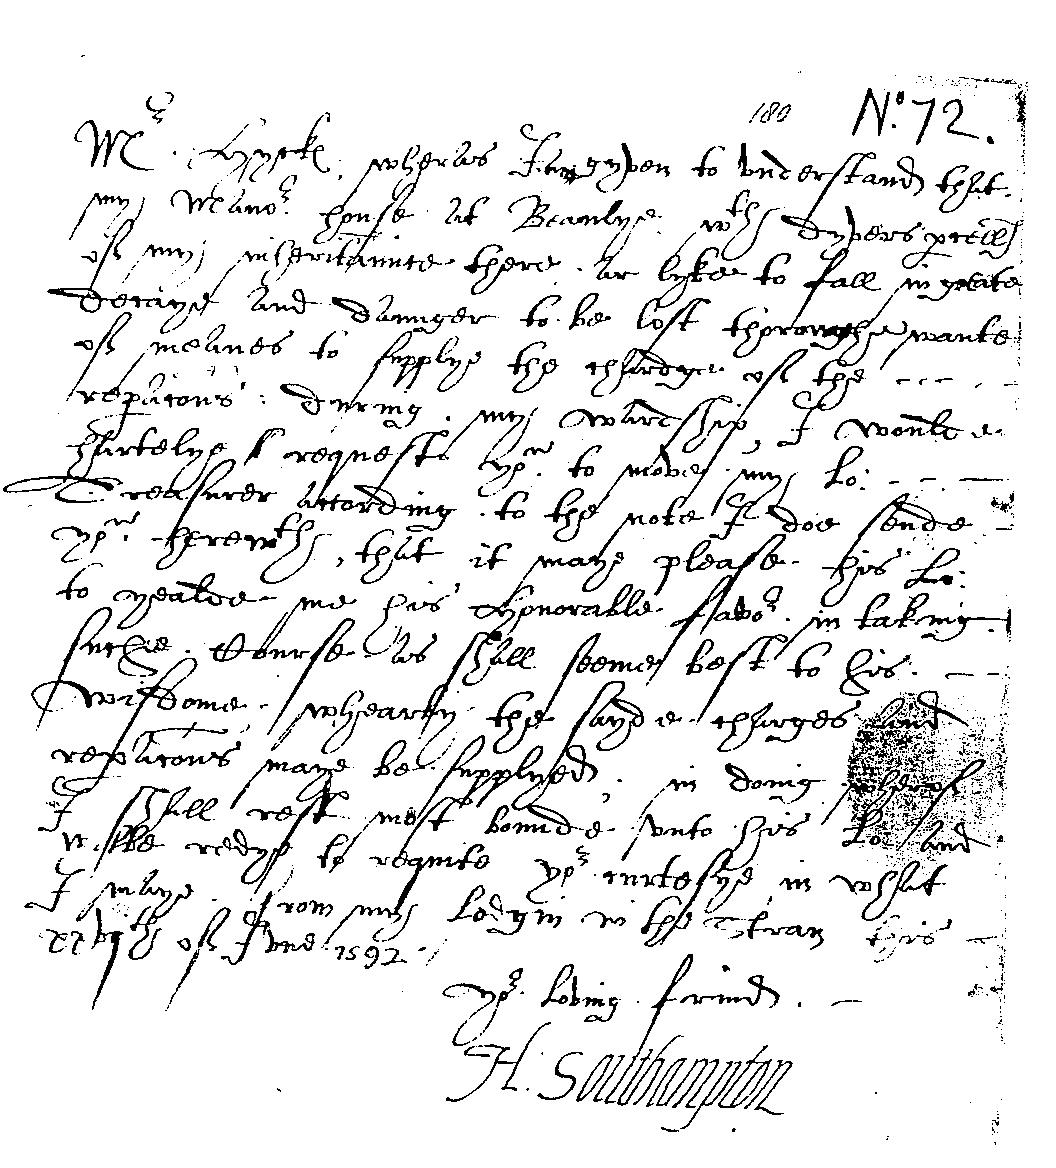 180 No. 72.
Mr. Hycke, wheras I am gyven to vnderstand that.
my Manor house at Beaulye wth dyvers pcells
of my inheritaunce there. ar lyke to fall in greate
decaye and daunger to be lost thoroughe wante
of meanes to supplye the chardge of the
repacons: during my wardship, I woulde
hartelye request yor to move my Lo:
Treasurer according to the note I doe sende
you herewth, that it maye please his Lo:
to yealde me his honorable favor in taking
suche Course as shall seeme best to his
wisdome. whearby the sayde charges and
repacons maye be supplyed, in doing wherof
I shall rest most bounde vnto his Lo: and
redye to requite yor curtesye in what
I maye. From my lodgin in the Stran this
xxvjth of June 1592.
yor loving frind.
H. Southampton